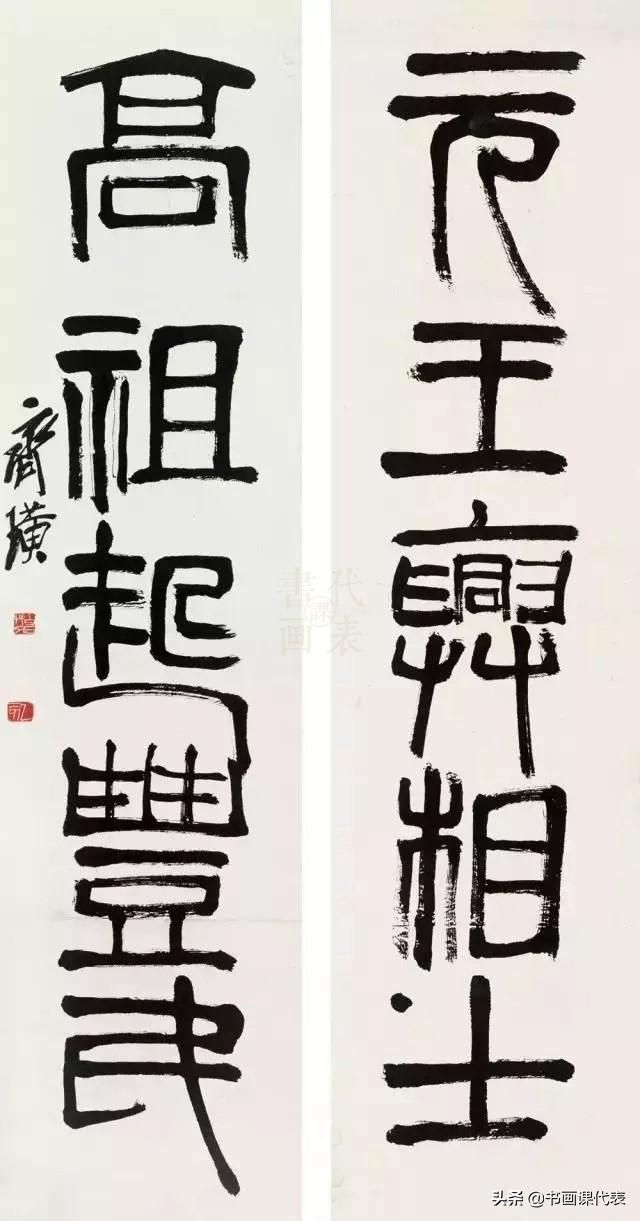 元王興相土
高祖起豐民
齊璜
書画課代表
头条 @书画课代表